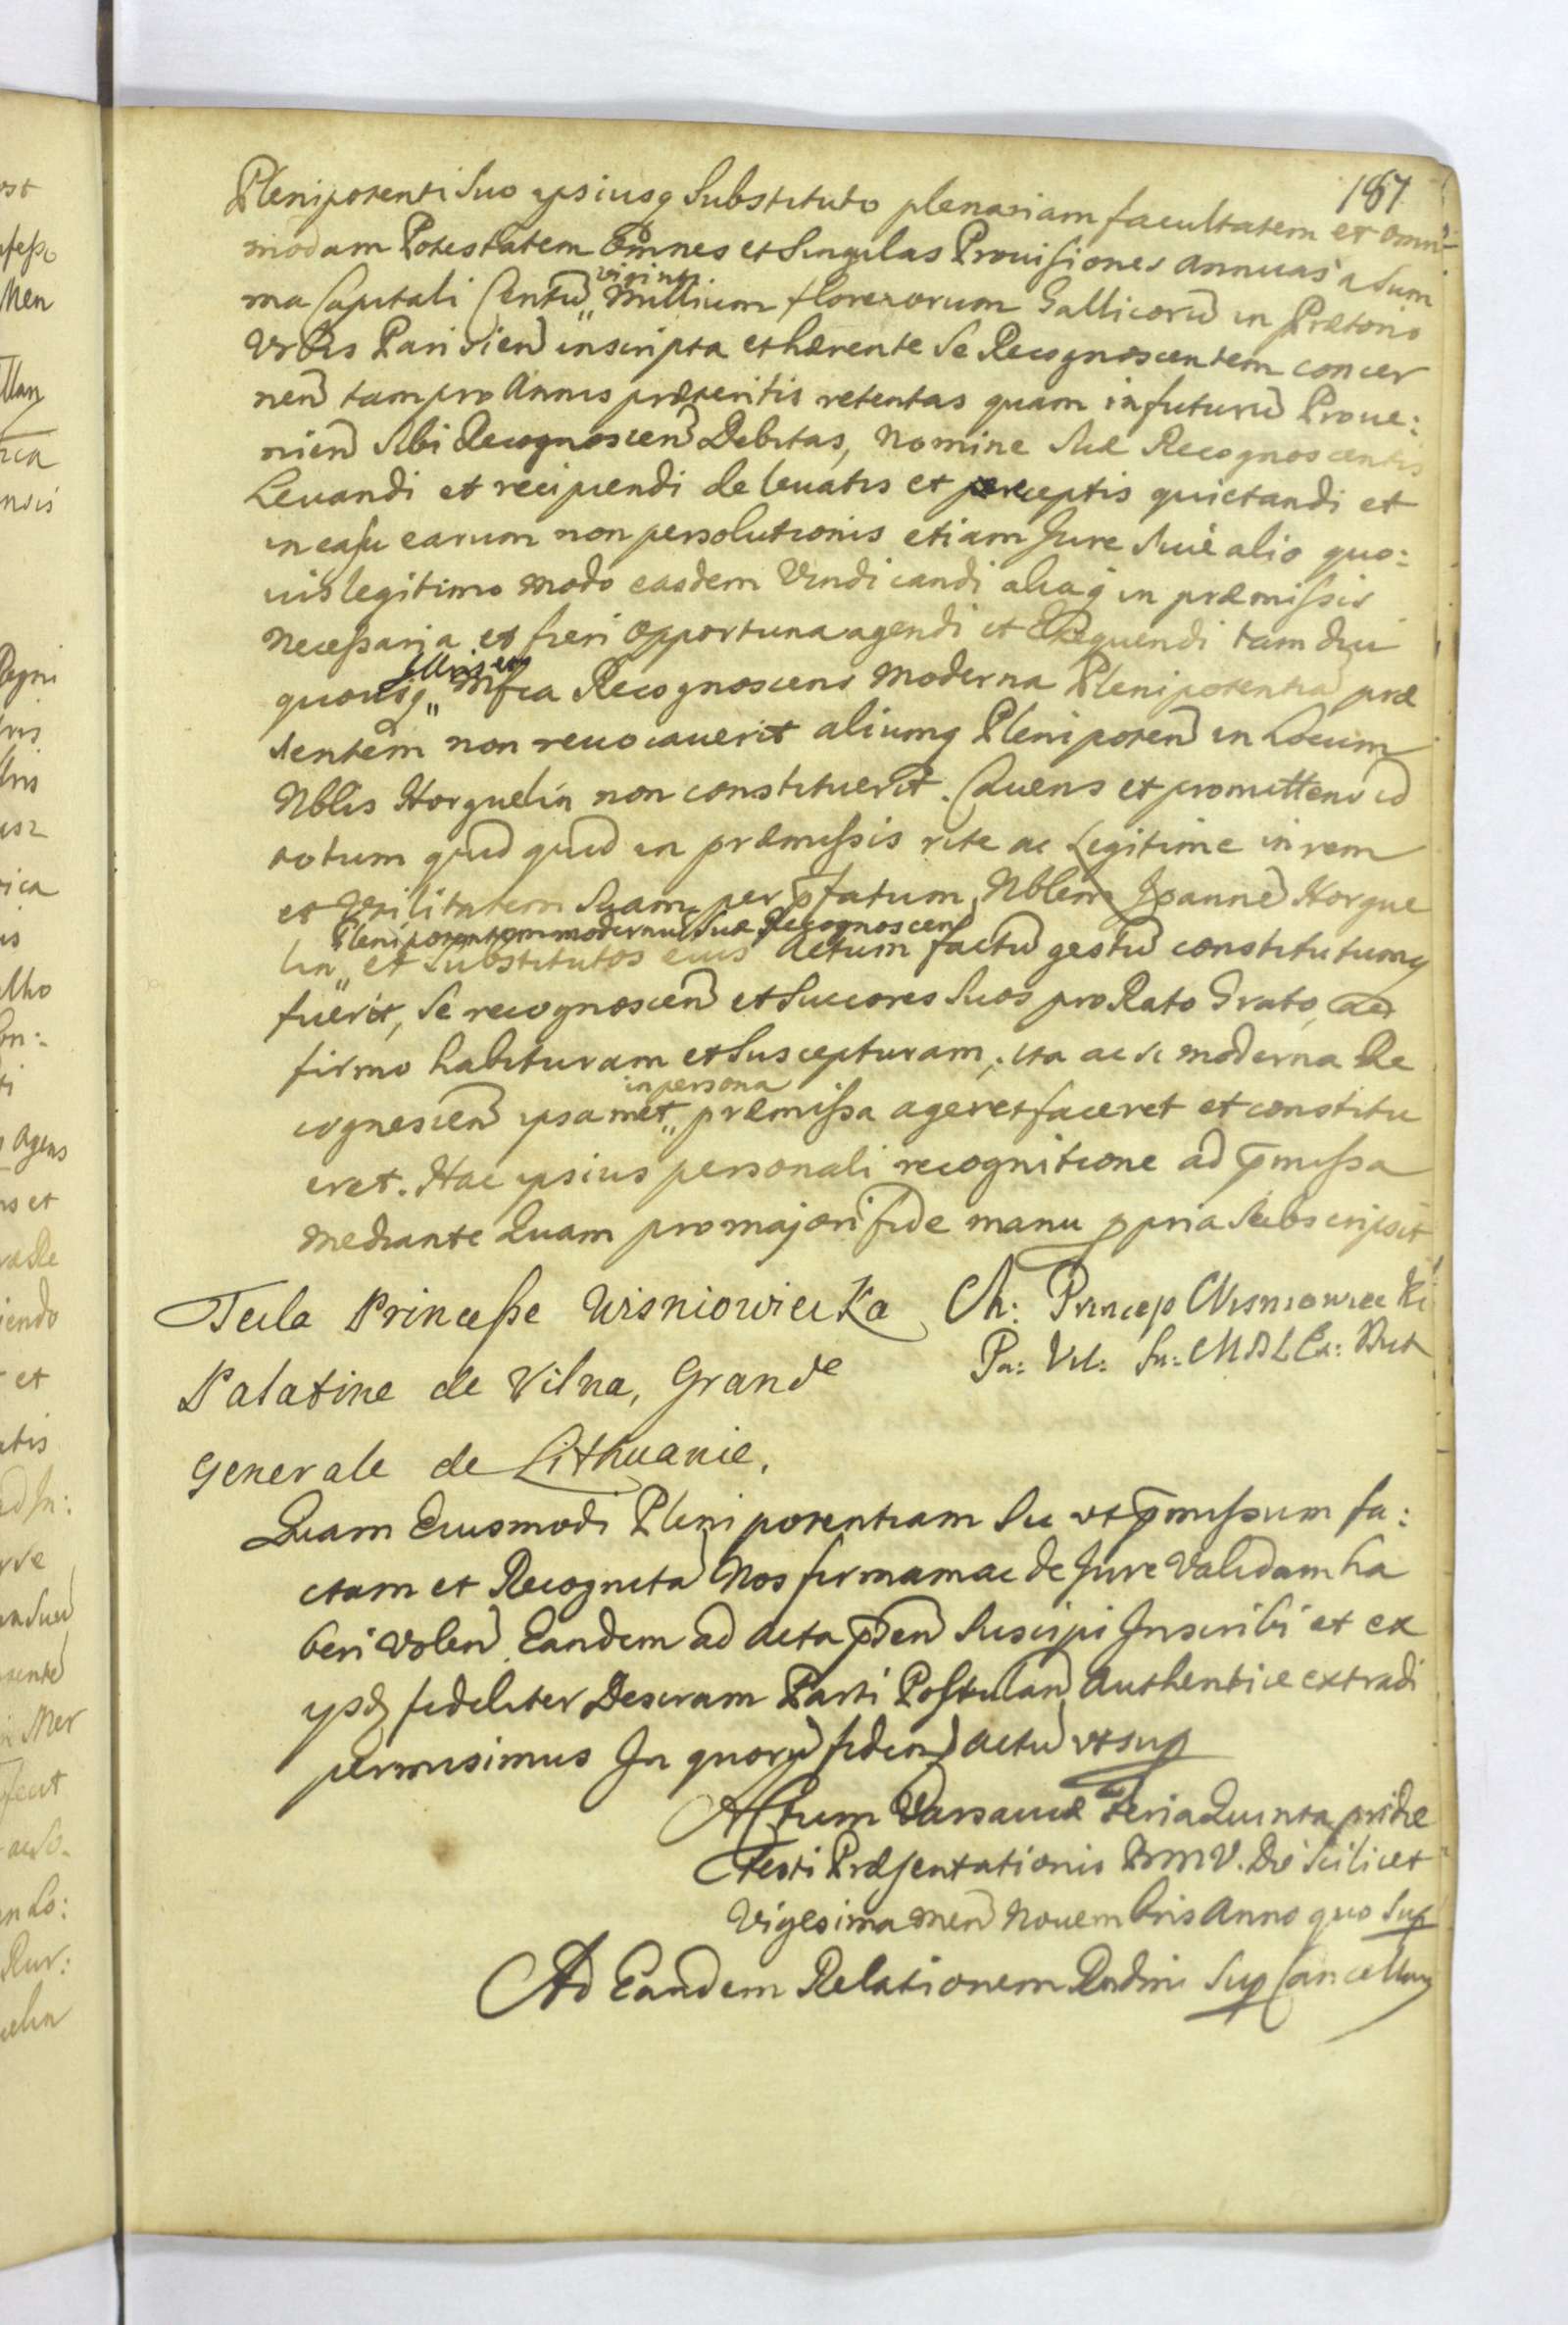 187
Plenipotenti Suo ipsiusq Substituto plenariam facultatem et omni-
modam Potestatem Omnes et Singulas Prouisiones annuas a Sum
ma Capitali Centũ viginti Millium florenorum Gallicorũ in Prætorio
Vrbis Parisien inscripta et hærente Se Recognoscentem concer
nen tam pro Annis præteritis retentas quam in futurũ Proue:
nien sibi Recognoscen Debitas, Nomine Suæ Recognoscentis
Leuandi et recipiendi de leuatis et perceptis quietandi et
in casu earum non persolutionis etiam Jure siue alio quo:
uis legitimo modo easdem Vindicandi aliaq in præmissis
necessaria et fieri opportuna agendi et Exequendi tam diu
quousq Mfca Recognoscens moderna Plenipotentia præ
sentem non reuocauerit aliumq Plenipoten in Locum
Nblis Horguelin non constituerit. Cauens et promittens id
totum quidquid in præmissis rite ac Legitime in rem
et Vtilitatem Suam per p̃fatum Nblem Joannẽ Horgue
lin Plenipotentem modernũ Suæ Recognoscen et Substitutos eius actum factũ gestũ constitutumq
fuerit, Se recognoscen et Succores Suos pro Rato Grato, ac
firmo habituram et Suscepturam, ita ac si moderna Re
cognoscen ipsamet in persona præmissa ageret faceret et constitu
eret. Hac ipsius personali recognitione ad p̃missa
mediante Quam pro majori fide manu ppria Subscripsit
Tecla Princesse Wisniowiecka
Palatine de Vilna, Grande
Generale de Lithuanie.
Ch: Princeps Wisniowiecki
Pa: Vil: Su: M D L Ex: Dux
Quam Eiusmodi Plenipotentiam Sic vt p̃missum fa:
ctam et Recognitã Nos firmam ac de Jure Validam ha
beri Volen Eandem ad acta p̃sen Suscipi Inscribi et ex
ysdq fideliter Descriptam Parti Postulan authentice extradi
permisimus In quorũ fidem actũ vt sup
Actum Varsauiæ Feria Quinta pridie
Festi Præsentationis BMV. Die Scilicet
Vigesima men Nouembris Anno quo Sup
Ad Eandem Relationem Rndmi Sup Cancellarij